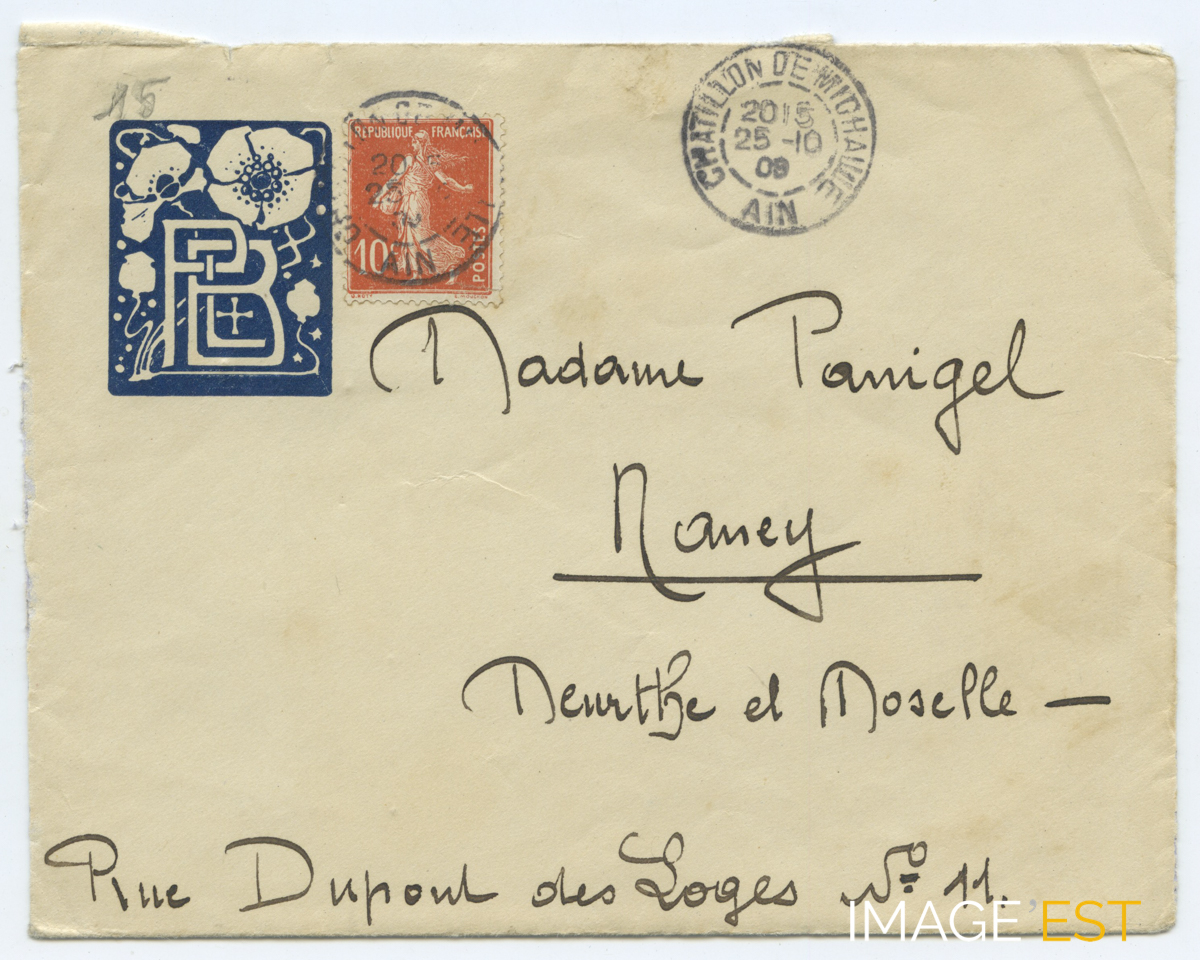 15
PLB
RÉPUBLIQUE FRANÇAISE
10c
POSTES
AIN
CHATILLON DE MICHAILLE
20 15
25 -10
09
AIN
Madame Panigel
Nancy
Meurthe et Moselle —
Rue Dupont des Loges No 11.
IMAGE EST